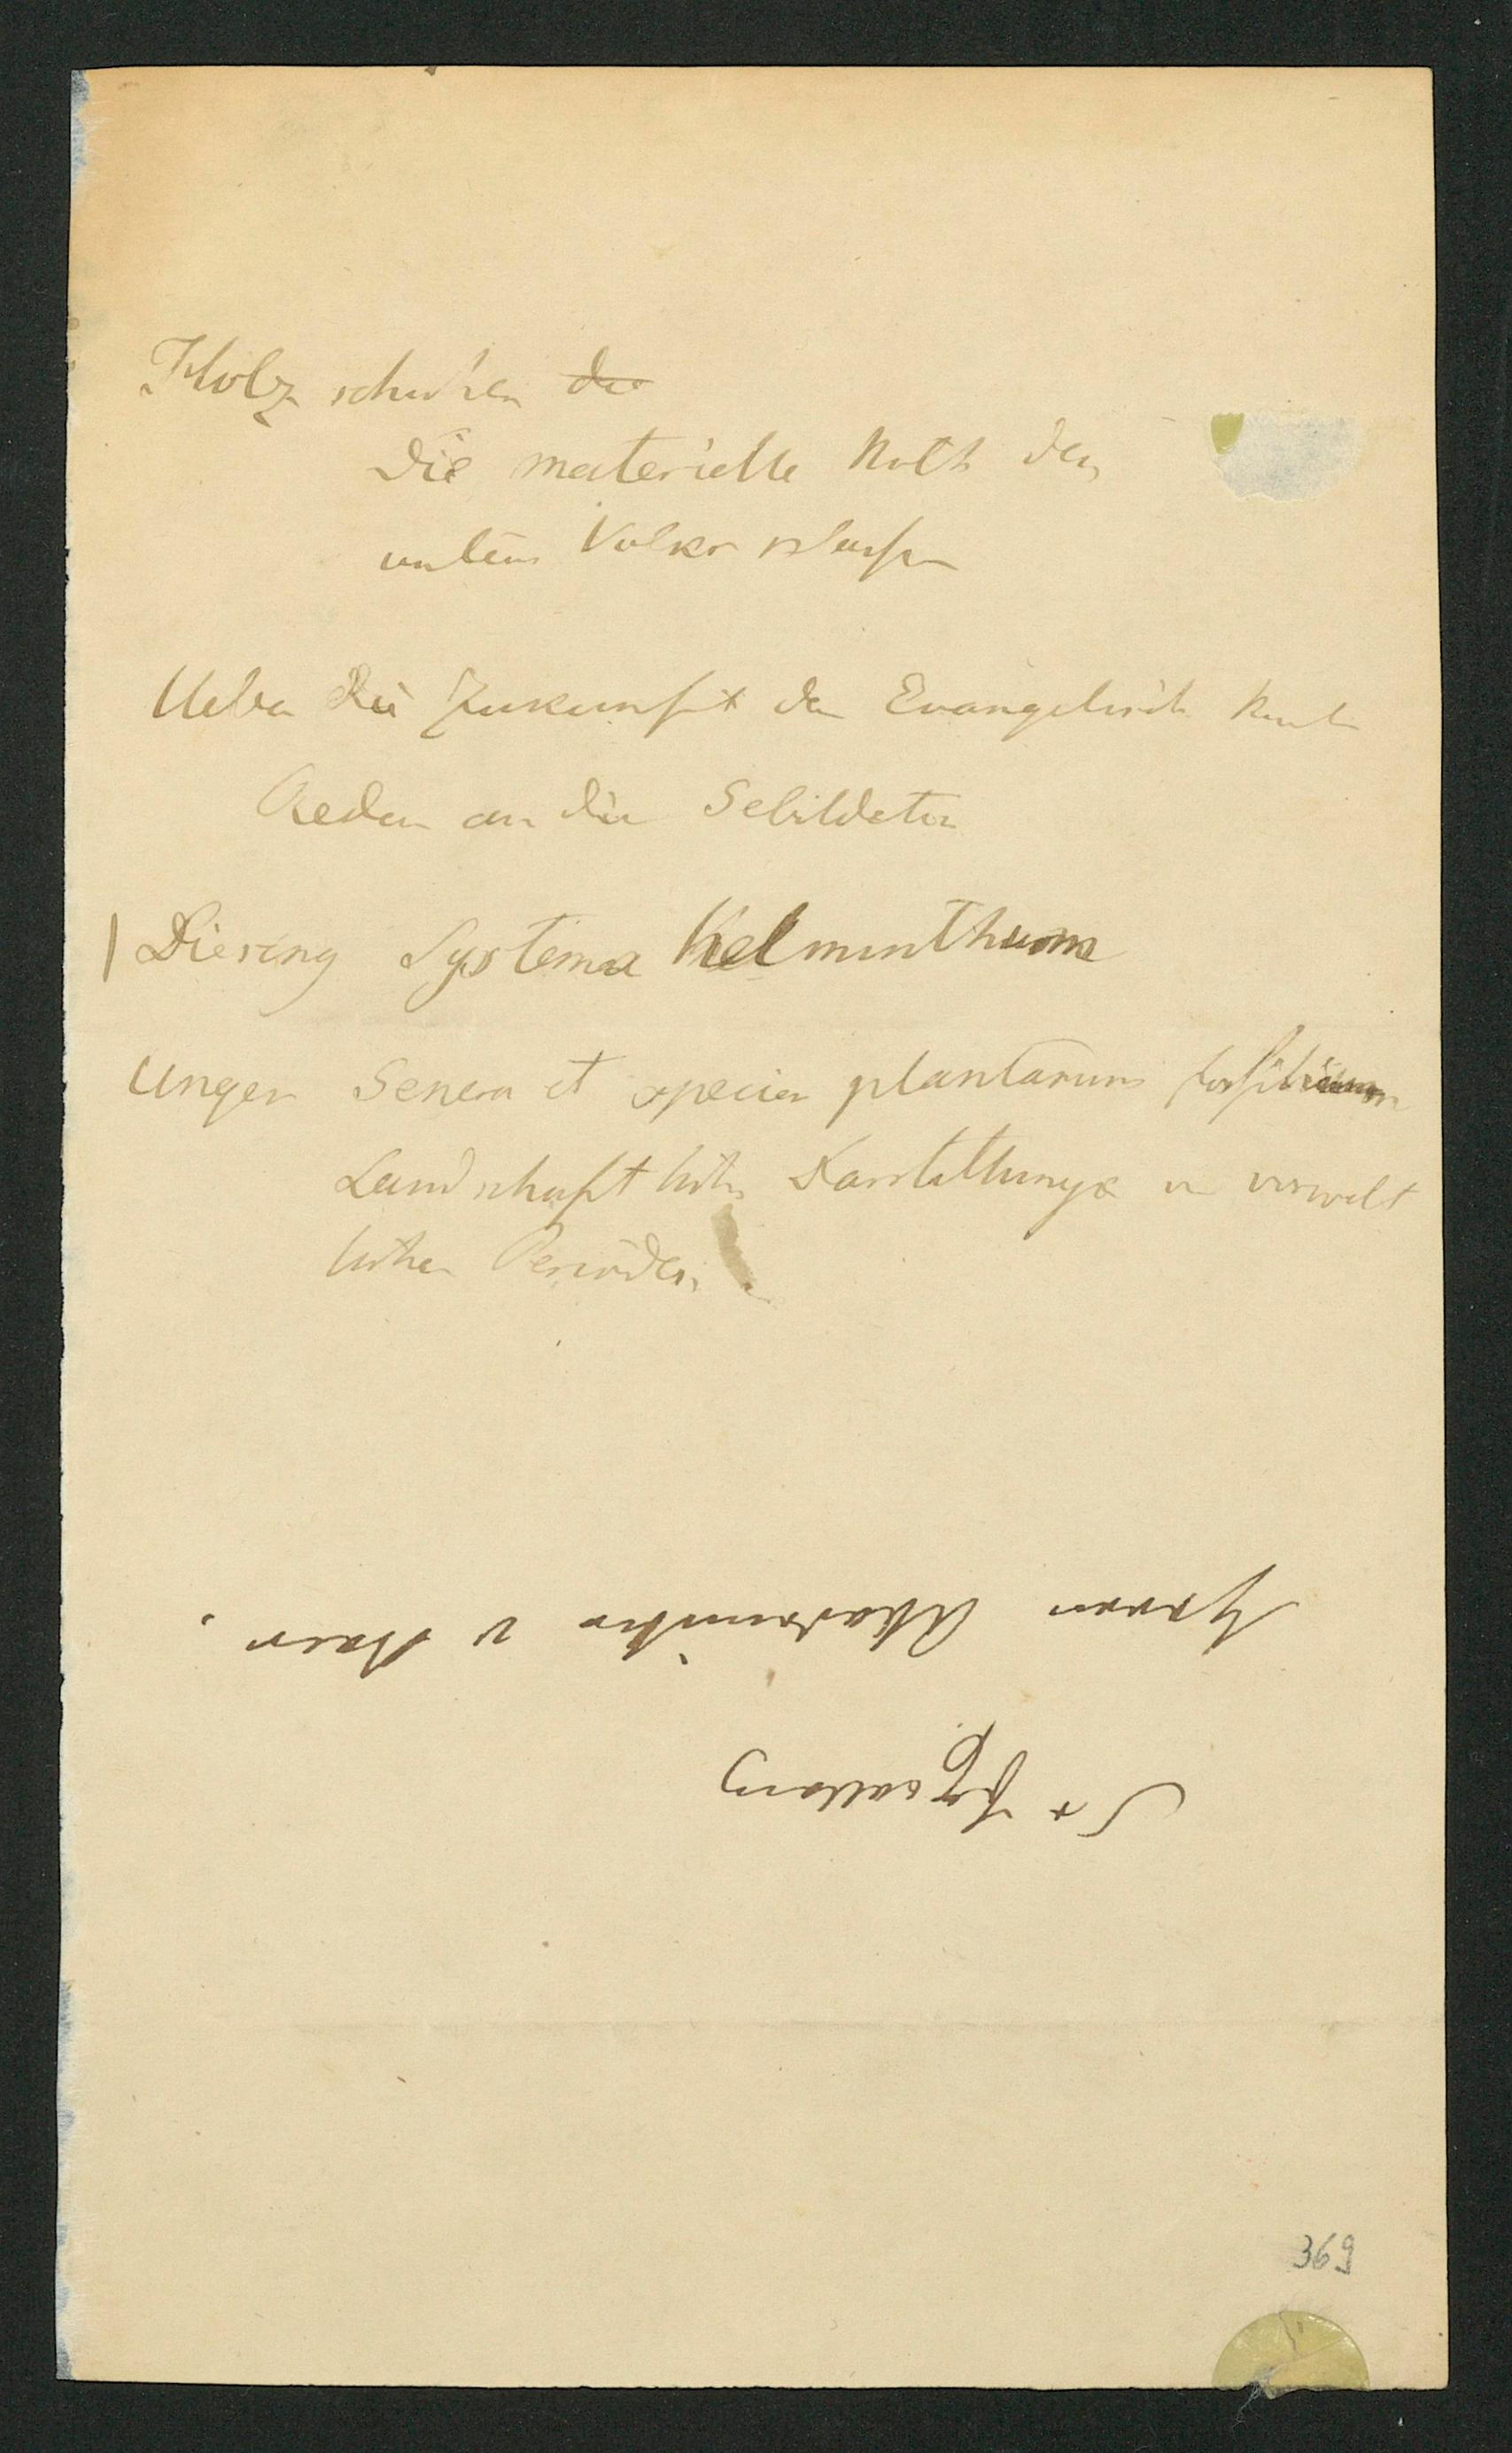 Holzschuher <s>die</s>
Die materielle Noth der
untern Volksklassen
Ueber die Zukunft der Evangelisch Kirche
Reden an die Gebildeten
Diesing Systema Helminthum
Unger Genera et species plantarum fossilium
Landschaftliche Darstellungen v vorwelt
lichen Perioden
Herrn Akademiker v Baer.
369